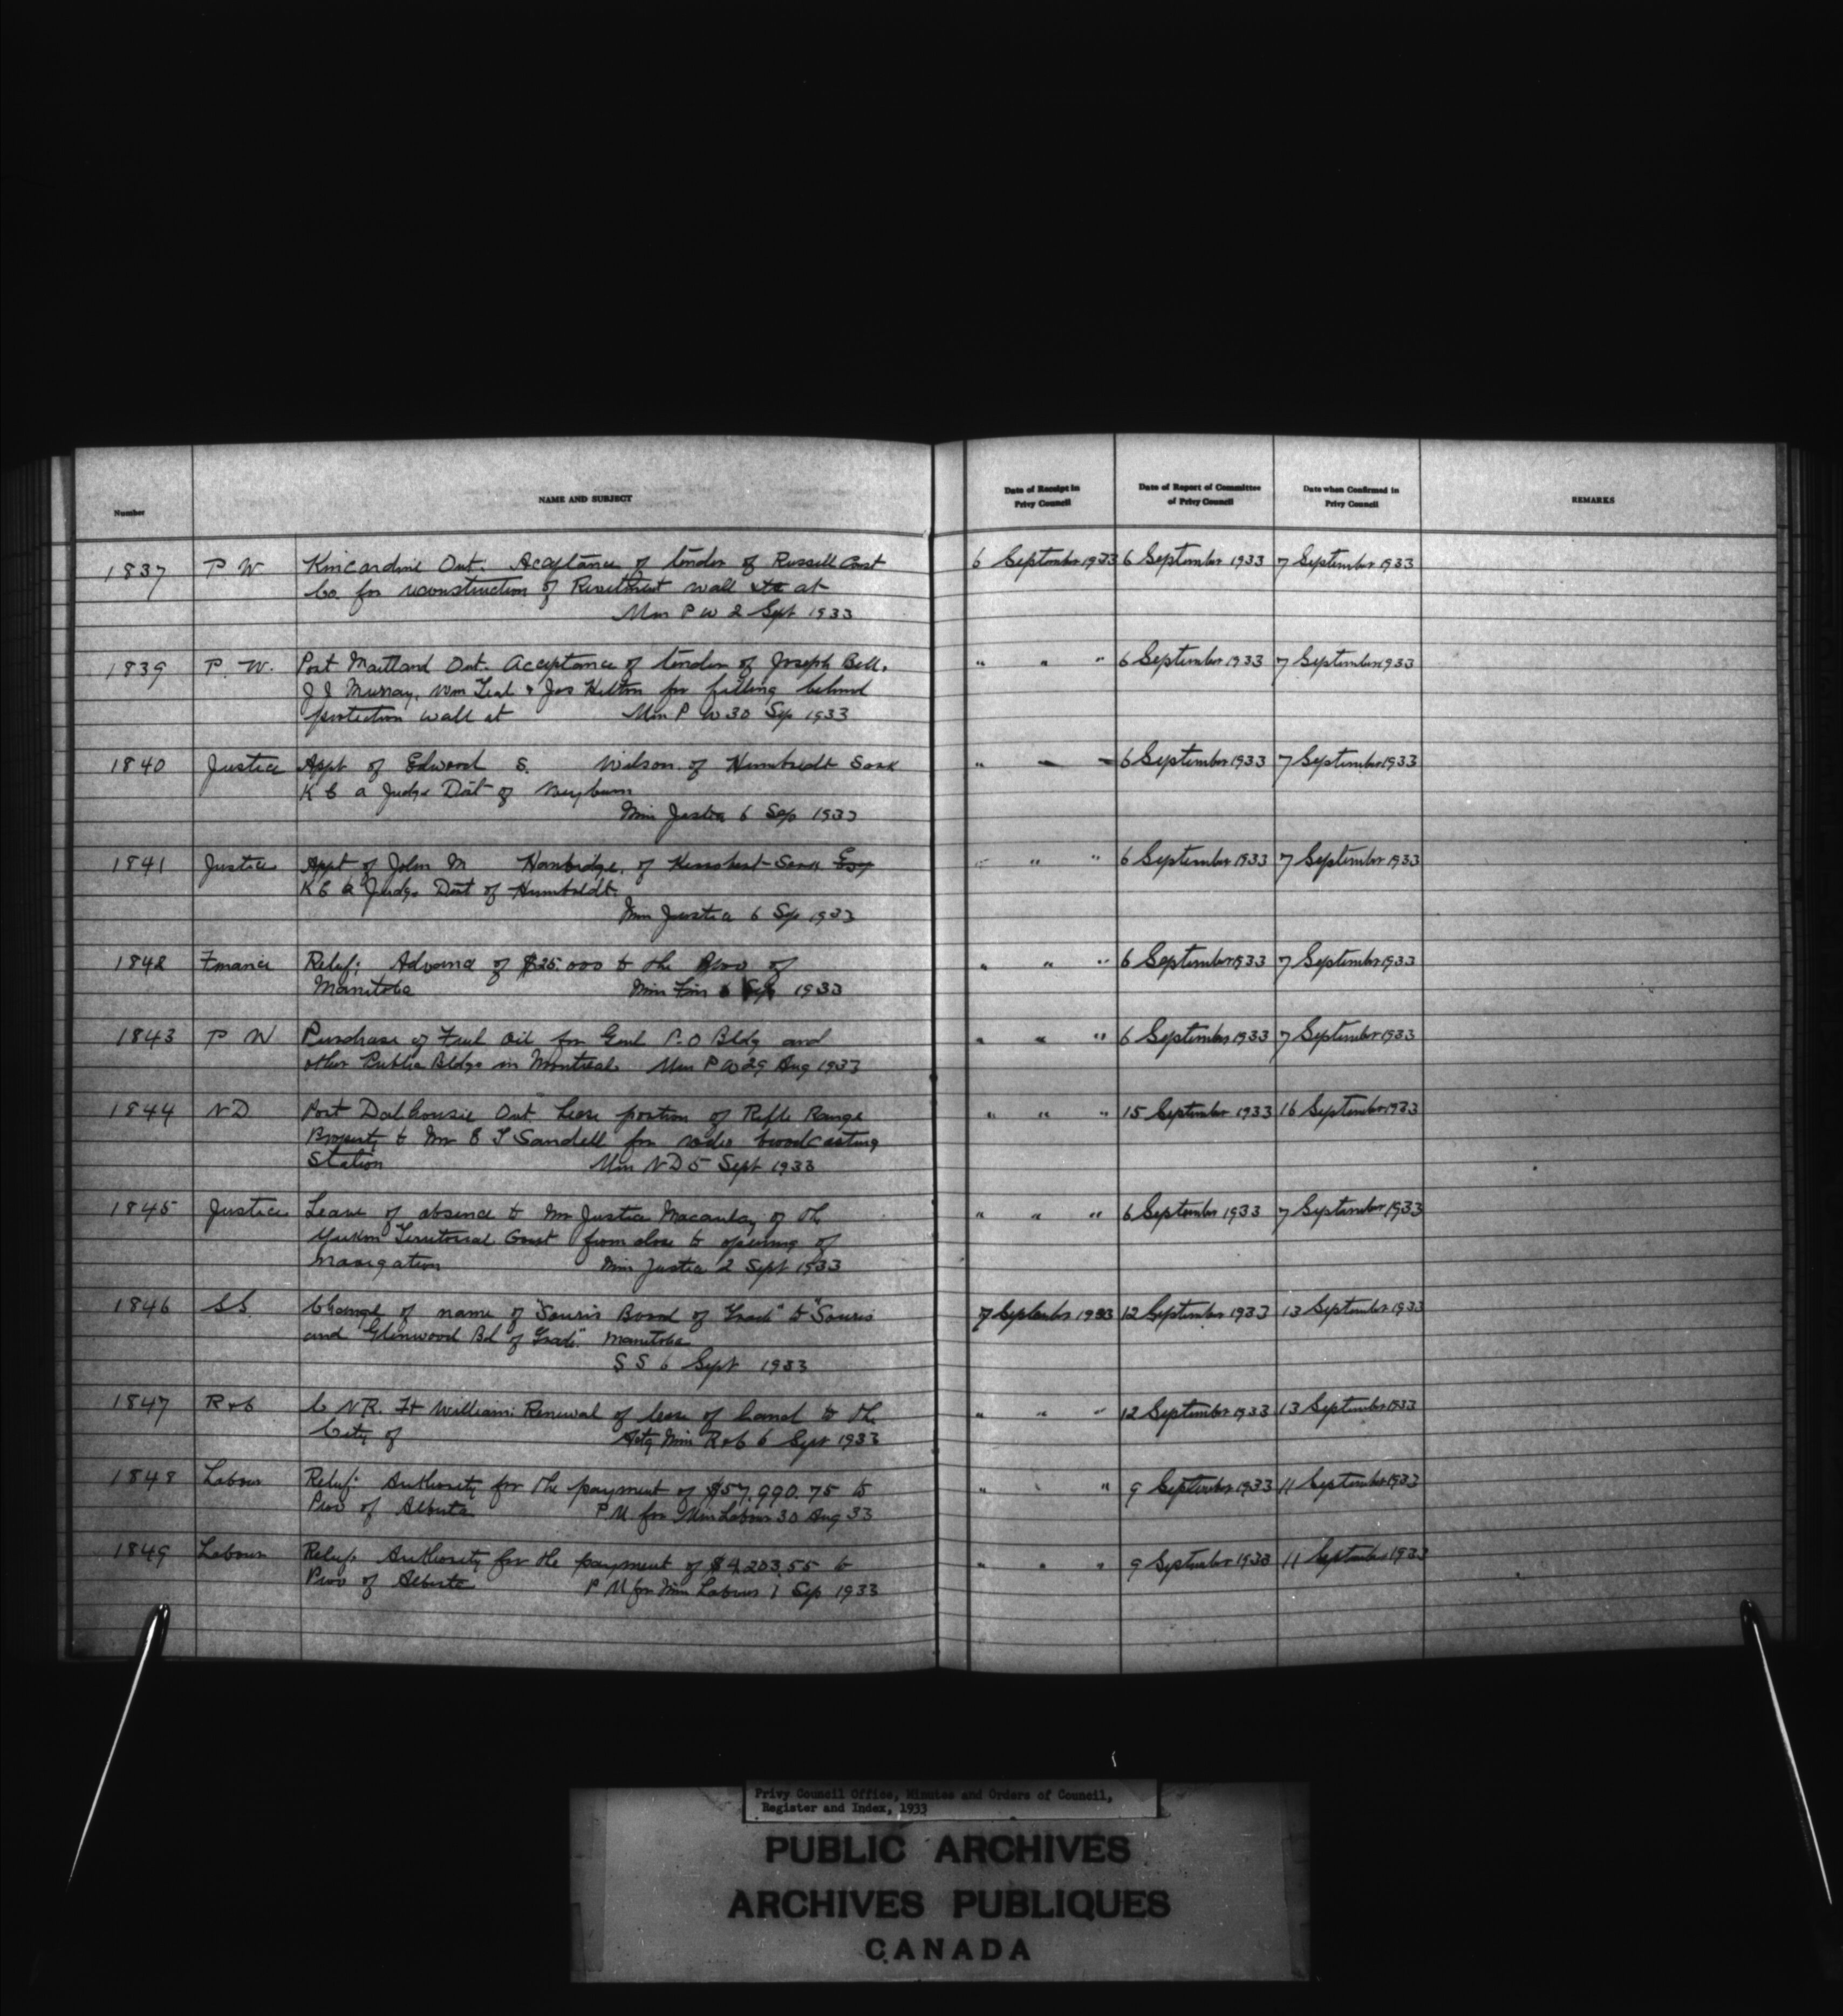 Number
NAME AND SUBJECT
Date of Receipt in Privy Council
Date of Report of Committee of Privy Council
Date when Confirmed in Privy Council
REMARKS
1837 P W Kincardine Ont. Acceptance of tender of Russell Const 6 September 1933 6 September 1933 7 September 1933
Co. for reconstruction of Revetment wall at
Min P W 2 Sept 1933
1839 P. W. Port Maitland Ont. Acceptance of tender of Joseph Bell, " " " 6 September 1933 7 September 1933
J J Murray, Wm Teal & Jos Hilton for filling behind
protection wall at Min P W 30 Sep 1933
1840 Justice Appt of Edward S. Wilson of Humboldt Sask " " " 6 September 1933 7 September 1933
K C a Judge Dist of Weyburn
Min Justice 6 Sep 1933
1841 Justice Appt of John M Hanbidge of Kerrobert Sask Esq " " " 6 September 1933 7 September 1933
K C a Judge Dist of Humboldt.
Min Justice 6 Sep 1933
1842 Finance Relief: Advance of $25.000 to the Prov of " " " 6 September 1933 7 September 1933
Manitoba Min Fin 6 Sep 1933
1843 P W Purchase of Fuel Oil for Genl P.O Bldg and " " " 6 September 1933 7 September 1933
other Public Bldgs in Montreal. Min P W 29 Aug 1933
1844 N D Port Dalhousie Ont Lease portion of Rifle Range " " " 15 September 1933 16 September 1933
Property to Mr E T Sandell for radio broadcasting
Station Min N D 5 Sept 1933
1845 Justice Leave of absence to Mr Justice Macaulay of the " " " 6 September 1933 7 September 1933
Yukon Territorial Court from close to opening of
navigation Min Justice 2 Sept 1933
1846 S S. Change of name of "Souris Board of Trade" to "Souris 7 September 1933 12 September 1933 13 September 1933
and Glenwood Bd of Trade." Manitoba
S S 6 Sept 1933
1847 R & C C N R. Ft William: Renewal of lease of land to the " " " 12 September 1933 13 September 1933
City of Actg Min R & C 6 Sept 1933
1848 Labour Relief: Authority for the payment of $57,990.75 to " " " 9 September 1933 11 September 1933
Prov of Alberta P M for Min Labour 30 Aug 33
1849 Labour Relief: Authority for the payment of $4,203.55 to " " " 9 September 1933 11 September 1933
Prov of Alberta P M for Min Labour 1 Sep 1933
Privy Council Office, Minutes and Orders of Council,
Register and Index, 1933
PUBLIC ARCHIVES
ARCHIVES PUBLIQUES
CANADA